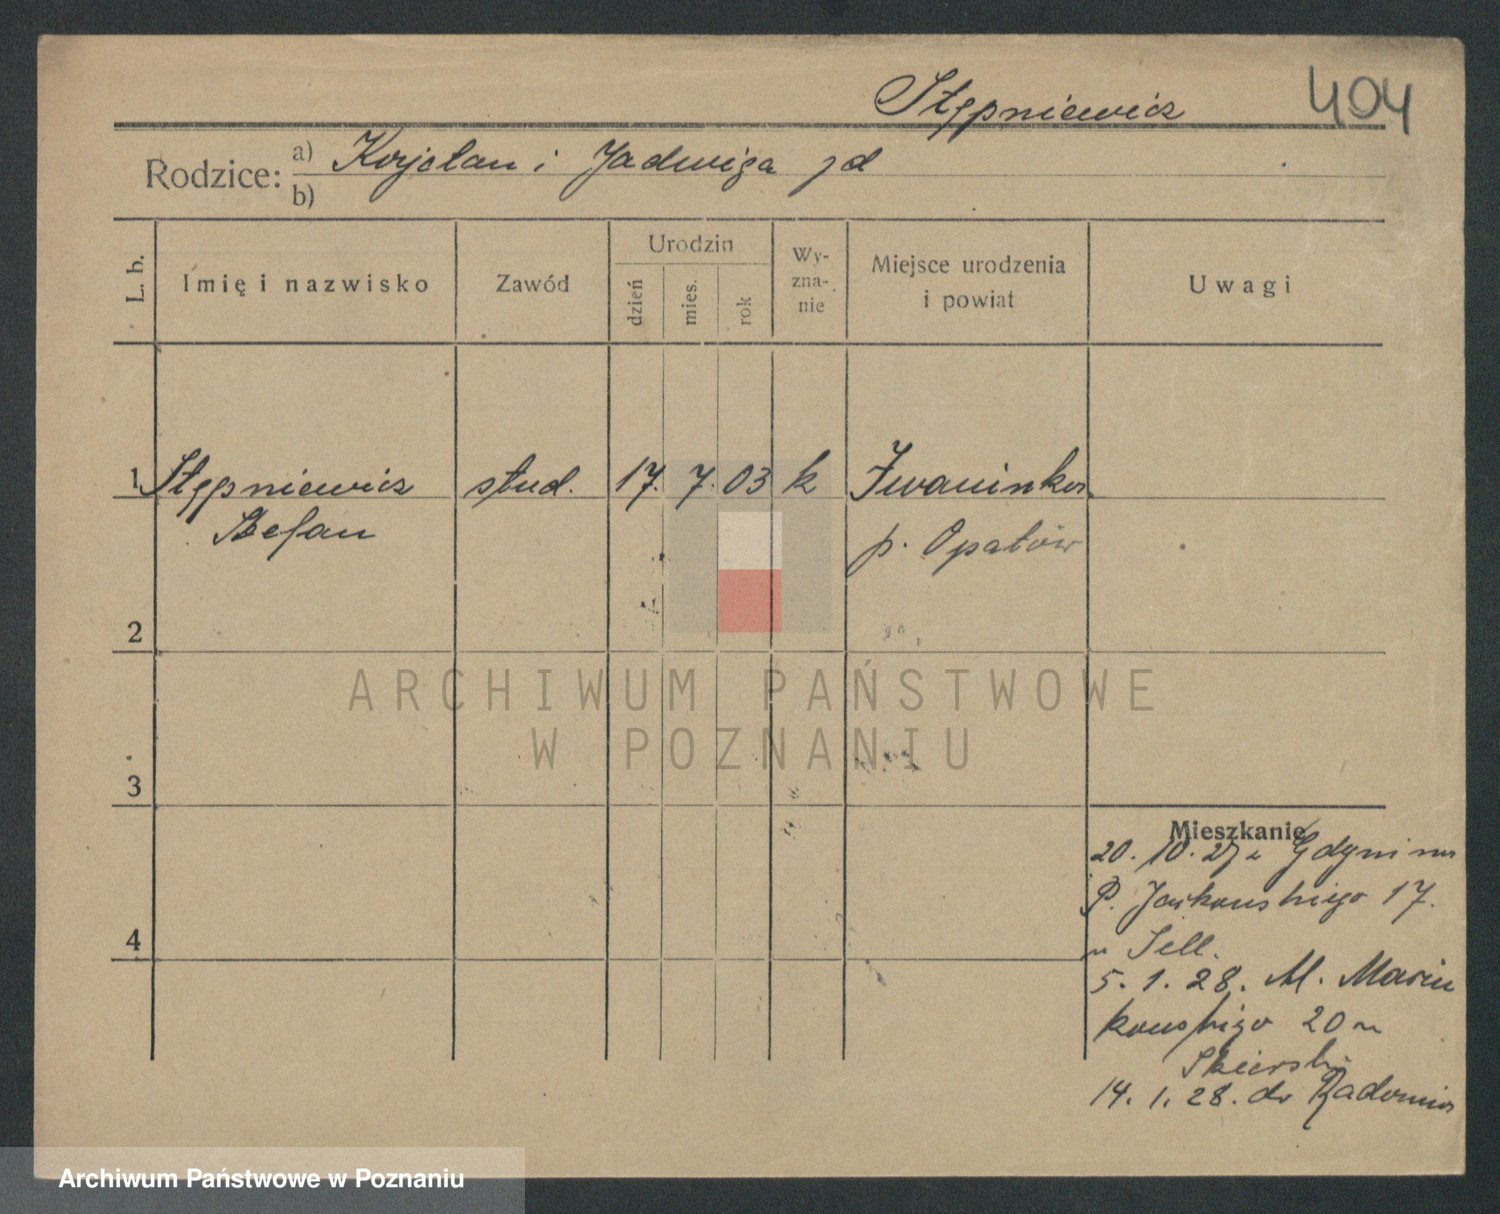 Stępniewicz 404
Rodzice: a) Kajetan i Jadwiga
b)
L. b.
Imię i nazwisko
Zawód
Urodzin
dzień
mies.
rok
Wy-
zna-
nie
Miejsce urodzenia
i powiat
Uwagi
1 Stępniewicz stud. 17. 7. 03 k Iwaninka
Stefan p. Opatów
2
ARCHIWUM PAŃSTWOWE
W POZNANIU
3
Mieszkanie
20. 10. 27 z Gdyni na
P. Jackowskiego 17.
u Sell.
5. 1. 28. M. Marcin
kowskiego 20 u
Skierski
14. 1. 28. do Radomia
Archiwum Państwowe w Poznaniu